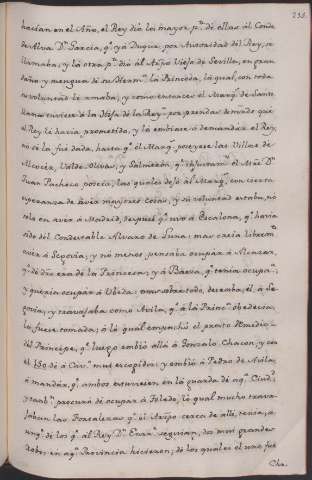 235.
hacian en el Año, el Rey dio la mayor p.te de ellas al Conde
de Alva D.n Garcia, q.e ya Duque, por Autoridad del Rey, se
llamaba; y la otra p.te dio al Arzpo Viejo de Sevilla, en gran
daño y mengua de su Herm.a la Princesa, la qual, con toda
su voluntad le amaba; y como entonces el Marq.s de Sante
llana tuviese à la Hija de la Reyna por prenda, de modo que
el Rey le havia prometido, y la embiase à demandar el Rey,
no se la fue dada, hasta q.e el Marq.s poseyese las Villas de
Alcocer, Valde Olivas, y Salmeron, q.e el Mñe D.n
Juan Pacheco, poseìa, las quales dejò al Marq.s, con cierta
esperanza de haver mayores Cosas, y su voluntad estaba, no
sola en aver à Madrid, despues q.e uvo à Escalona, q.e havia
sido del Condestable Alvaro de Luna: mas creìa librem.te
aver à Segovia, y no menos, pensaba ocupar à Alcaraz,
q.e de dio era de la Princesa; y à Baeza, q.e tenia ocupa.da
y queria ocupar à Ubeda: mas sobre todo, deseaba, el, à Se
govia, y travajaba como Avila, q.e à la Princ.a obedecia,
le fuese tomada; à la qual empachò el presto Remedio
del Principe, q.e luego embiò allà à Gonzalo Chacon, y con
el 150 de à Cav.o muy escogidos; y embiò à Pedro de Avila,
à mandar q.e ambos estuviesen en la guarda de aq.a Ciud.d
y tamb.n procurò de ocupar à Toledo, lo qual mucho trava
jaban las Fortalezas q.e el Arzpo cerca de alli, tenia, a
unq.e de los q.e al Rey D.n Enrr.e seguian, dos muy grandes
Robos, en aq.a Provincia hicieron; de los quales el uno fue
Cha.